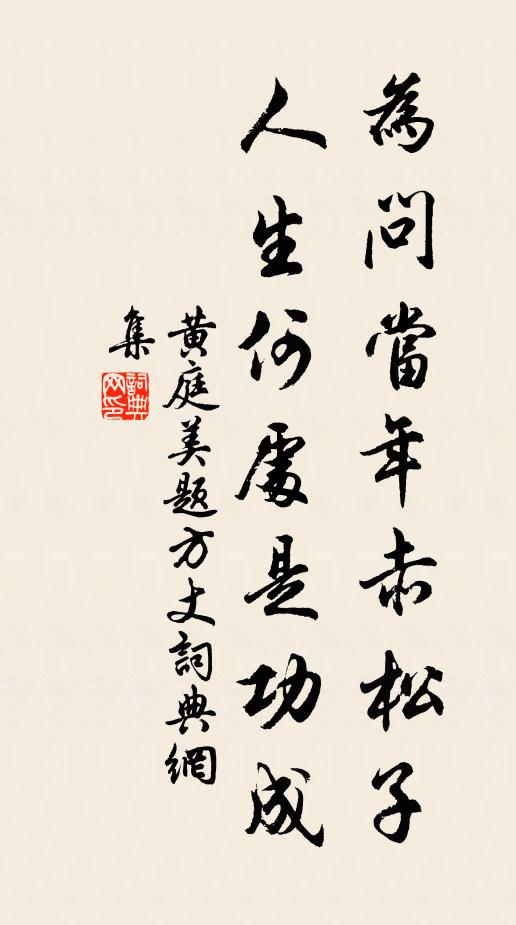 為問當年赤松子
人生何處是功成
黄庭美題方丈詞典網
集
詞典
网印